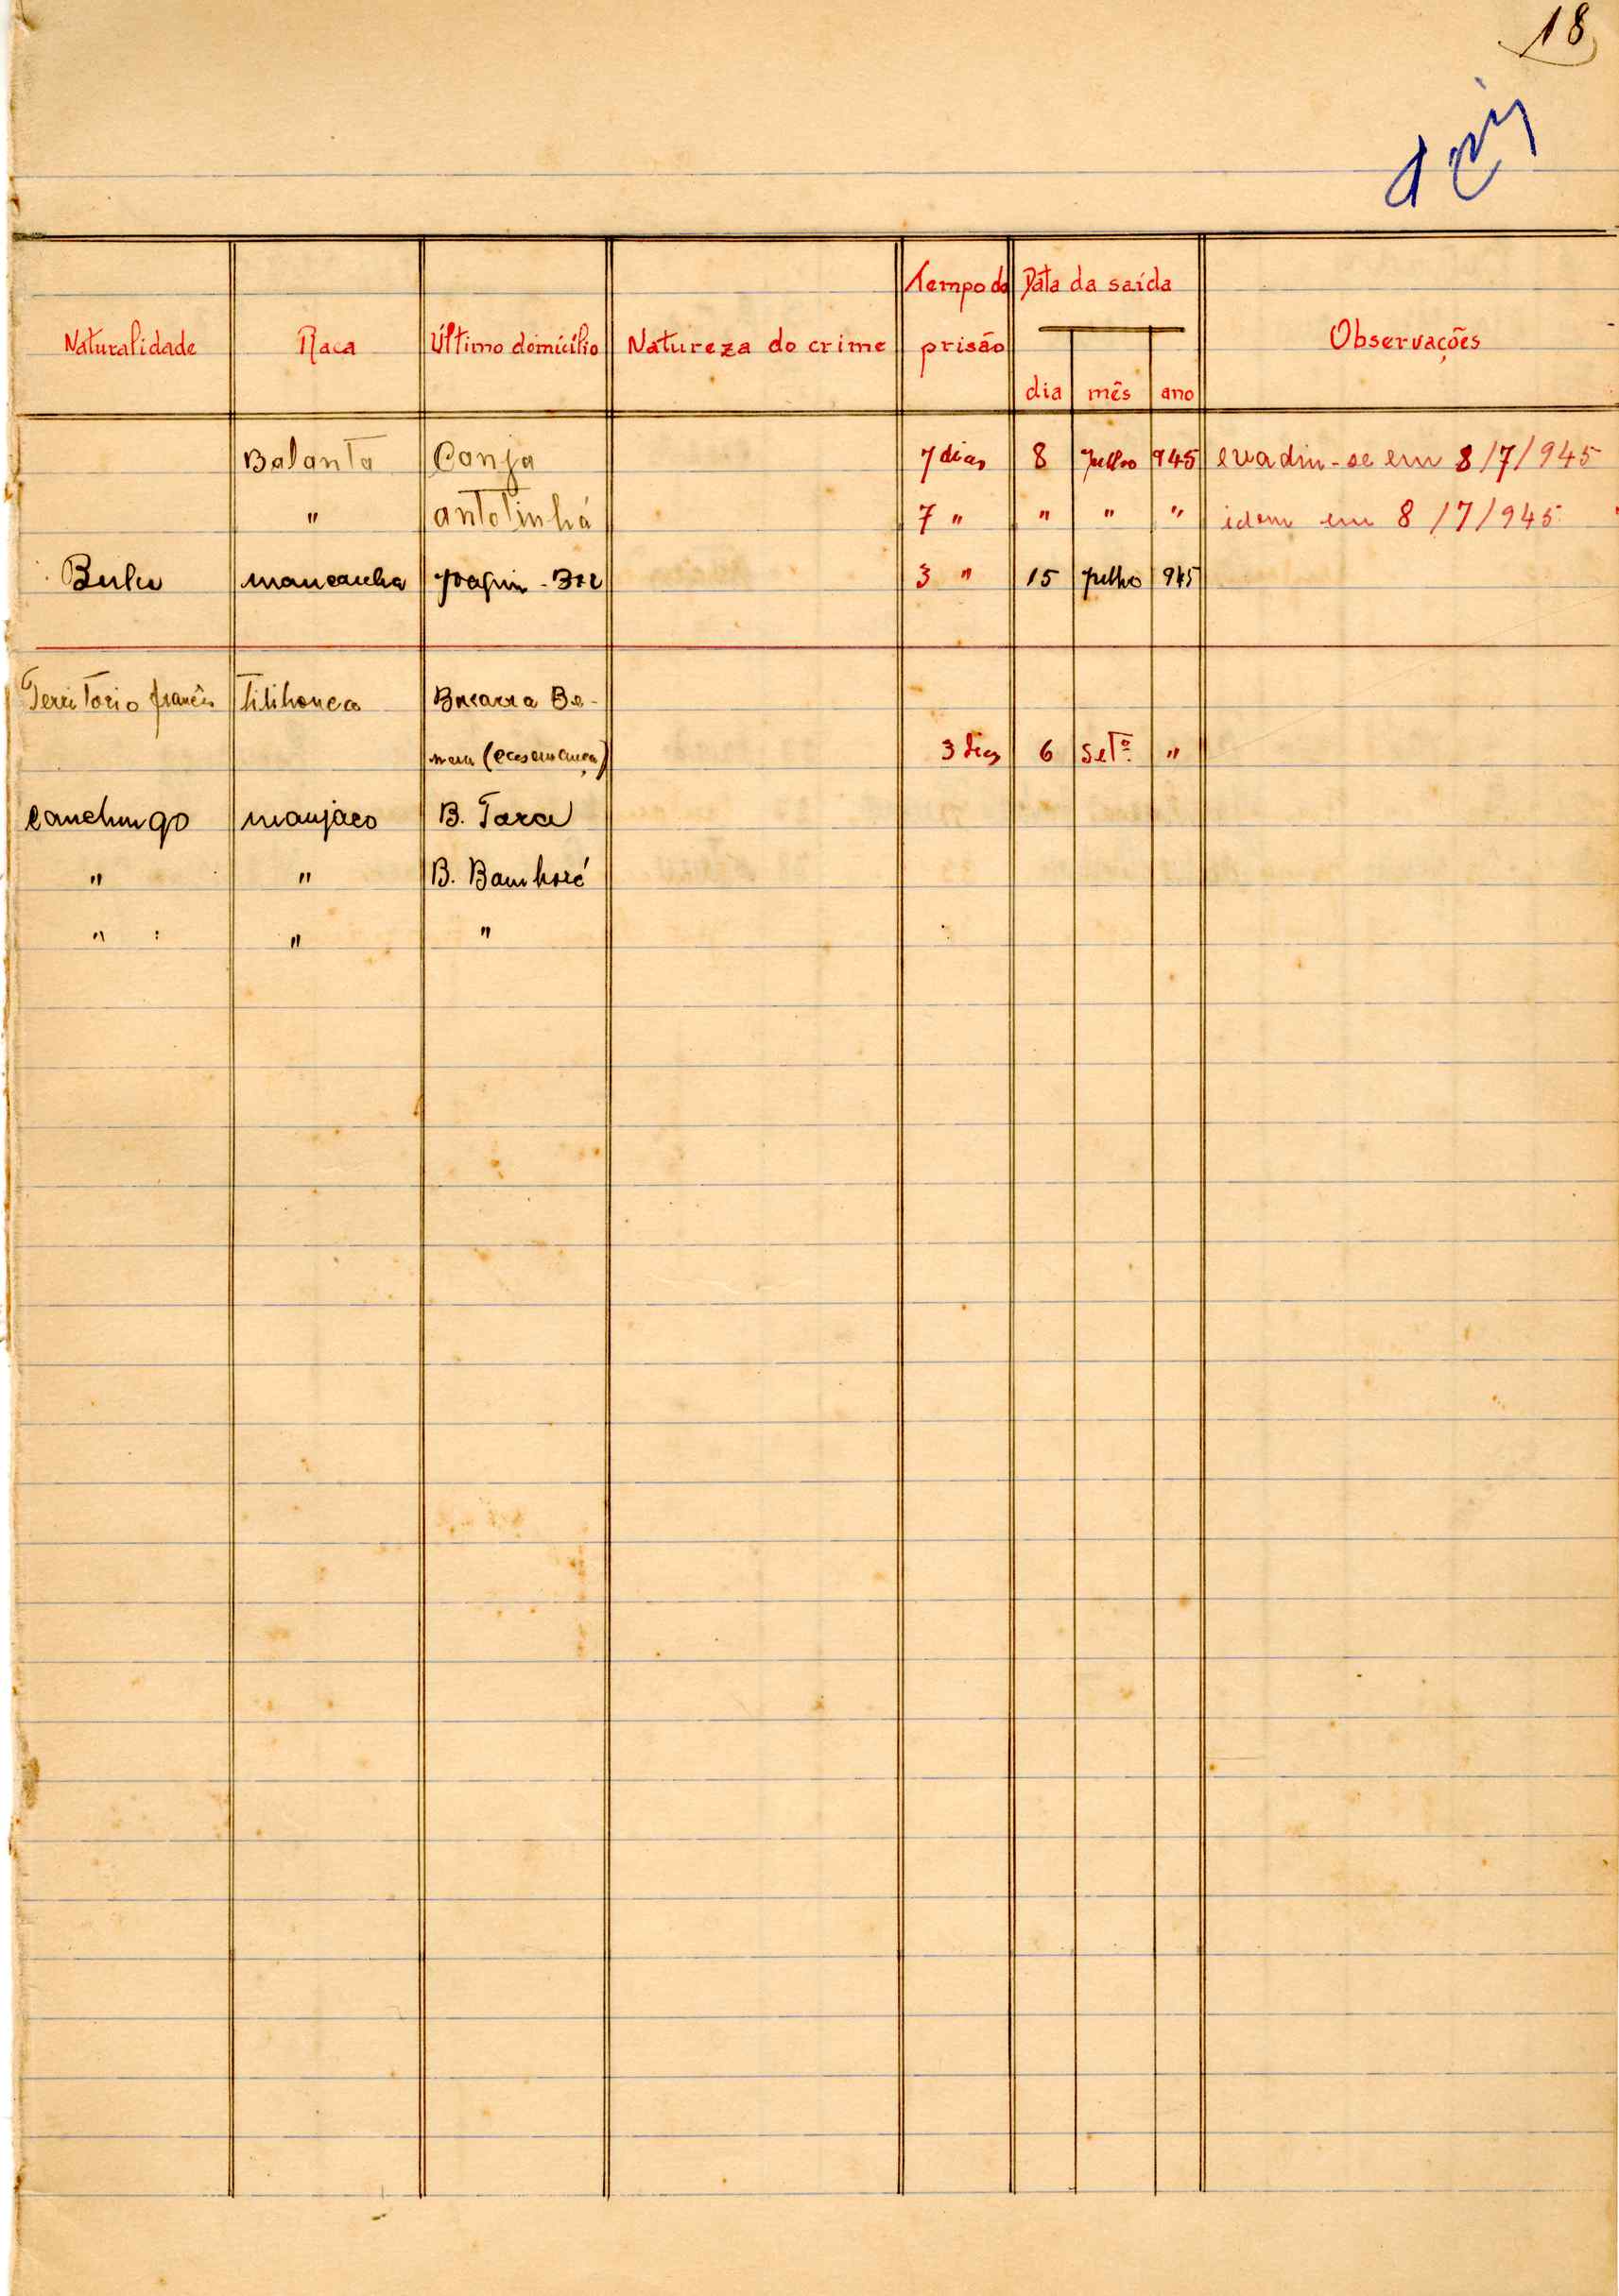 18
Tempo de Data da saída
Naturalidade Raca Último domicílio Natureza do crime prisão Observações
dia mês ano
Balanta Canja 7 dias 8 Julho 945 evadiu-se em 8/7/945
" antotinhá 7 " " " " idem em 8/7/945
Bula mancanha Joaquim 3 " 15 Julho 945
Território francês
3 dias 6 Setº "
Canchungo manjaco B. Tara
" " B. Bamboré
" " "